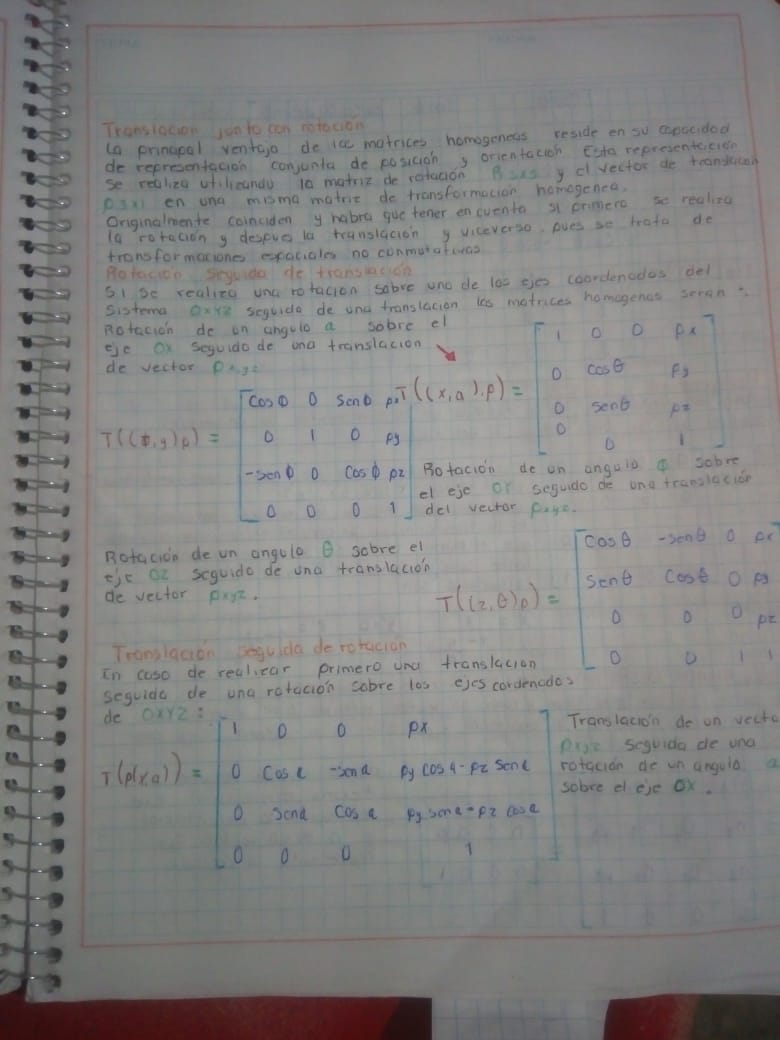 Translacion junto con rotacion
La principal ventaja de las matrices homogeneas reside en su capacidad
de representación conjunta de posición y orientación Esta representación
se realiza utilizando la matriz de rotación R3x3 y el vector de translacion
p3x1 en una misma matriz de transformacion homogenea.
Originalmente coinciden y habra que tener en cuenta si primero se realiza
la rotación y despues la translación y viceversa, pues se trata de
transformaciones espaciales no conmutativas
Rotación seguida de translación
Si se realiza una rotacion sobre uno de los ejes coordenados del
Sistema OXYZ seguida de una translacion las matrices homogenas seran:
Rotación de un angulo a sobre el
eje OX seguido de una translacion
de vector pxyz
T((x,a),p) =
1 0 0 px
0 cosθ py
0 senθ pz
0 0 1
T((Φ,y)p) =
cosΦ 0 senΦ px
0 1 0 py
-senΦ 0 cosΦ pz
0 0 0 1
Rotación de un angulo Φ sobre
el eje OY seguido de una translación
del vector pxyz.
Rotación de un angulo θ sobre el
eje OZ seguido de una translación
de vector pxyz.
T((z,θ)p) =
cosθ -senθ 0 px
senθ cosθ 0 py
0 0 0 pz
0 0 1 1
Translación seguida de rotacion
En caso de realizar primero una translacion
seguida de una rotación sobre los ejes cordenados
de OXYZ:
T(p(x,a)) =
1 0 0 px
0 Cos a -sen a py cos a - pz sen a
0 sen a Cos a py sen a - pz cos a
0 0 0 1
Translación de un vecto
pxyz seguida de una
rotación de un angulo a
sobre el eje OX.